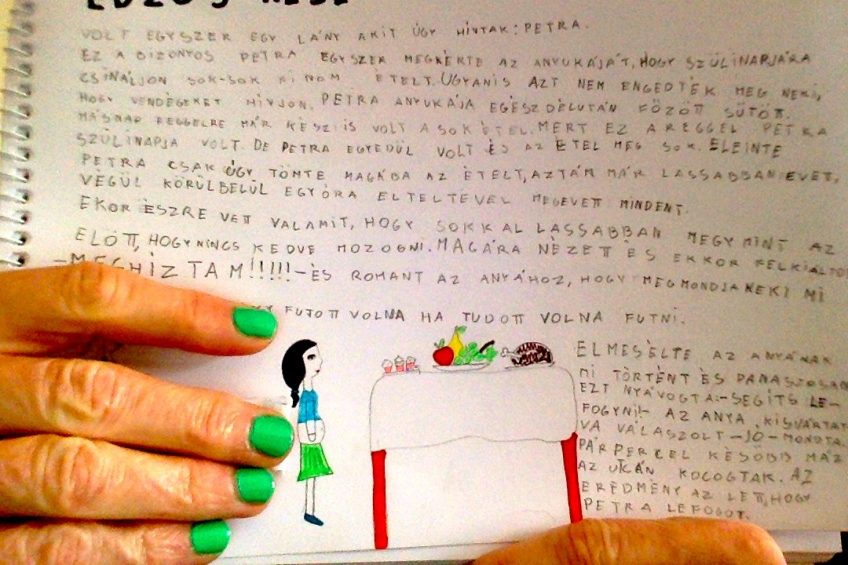 VOLT EGYSZER EGY LÁNY AKIT ÚGY HÍVTAK: PETRA.
EZ A BIZONYOS PETRA EGYSZER MEGKÉRTE AZ ANYUKÁJÁT, HOGY SZÜLINAPJÁRA
CSINÁLJON SOK-SOK FINOM ÉTELT. UGYANIS AZT NEM ENGEDTÉK MEG NEKI,
HOGY VENDÉGEKET HÍVJON. PETRA ANYUKÁJA EGÉSZ DÉLUTÁN FŐZÖTT SÜTÖTT.
MÁSNAP REGGELRE MÁR KÉSZ IS VOLT A SOK ÉTEL. MERT EZ A REGGEL PETRA
SZÜLINAPJA VOLT. DE PETRA EGYEDÜL VOLT ÉS AZ ÉTEL MEG SOK. ELEINTE
PETRA CSAK ÚGY TÖMTE MAGÁBA AZ ÉTELT, AZTÁN MÁR LASSABBAN EVETT,
VÉGÜL KÖRÜLBELÜL EGY ÓRA ELTELTÉVEL MEGEVETT MINDENT.
EKOR ÉSZRE VETT VALAMIT, HOGY SOKKAL LASSABBAN MEGY MINT AZ
ELŐTT, HOGY NINCS KEDVE MOZOGNI. MAGÁRA NÉZETT ÉS EKKOR FELKIÁLTOTT
-MEGHÍZTAM!!!!!-ÉS ROHANT AZ ANYÁHOZ, HOGY MEGMONDJA NEKI MI
FUTOTT VOLNA HA TUDOTT VOLNA FUTNI.
ELMESÉLTE AZ ANYÁNAK
MI TÖRTÉNT ÉS PANASZOSAN
EZT NYÁVOGTA:-SEGÍTS LE-
FOGYNI!- AZ ANYA KISVÁRTAT
VA VÁLASZOLT-JÓ-MONDTA.
PÁR PERCEL KÉSŐBB MÁR
AZ UTCÁN KOCOGTAK. AZ
EREDMÉNY AZ LETT, HOGY
PETRA LEFOGYOT.